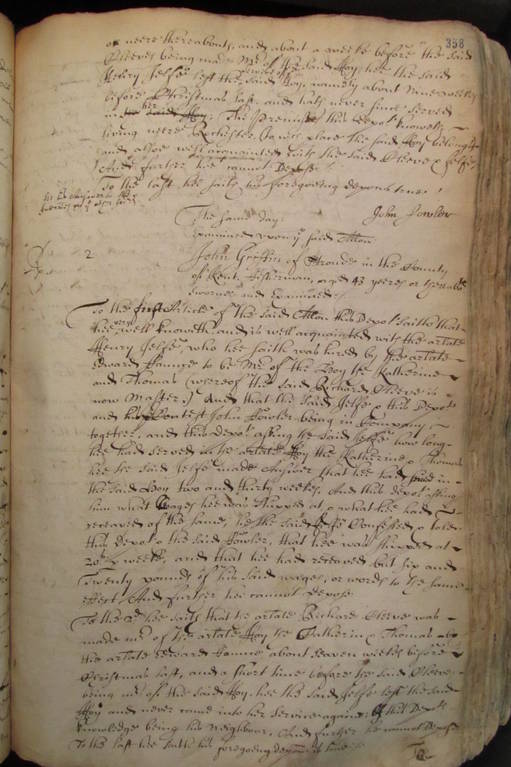 358
or neere thereabouts, and about a weeke before the said
Cleeve being made Mr of the said Hoy, hee the said
Henry Jelfe left the service of the said Hoy, namely about nine weekes
before Christmas last, and hath never since served
in her The Premisses this depot knoweth
living neere Rochester
and alsoe well acquainted with the said Cleeve & Jelfe
And further hee cannot depose
To the last hee saith his foregoeing deposition is true
John Fowler
The same day
Examined upon ye said Allon
2
John Griffin of Stroude in the County
of Kent, Fisherman, aged 43 yeeres or thereabts
sworne and examined
To the first Article of the said Allon this Depot saith that
hee very well knoweth and is well acquainted with the arlate
Henry Jelfe, who hee saith was hired by the arlate
Edward to be Mr of the Hoy the Katherine
and Thomas (whereof the said Richard Cleeve is
now Master.) And that the said Jelfe & this Depot
and his Contest John Fowler being in Company
together, and this depot asking the said Jelfe how long
hee had served in the arlate Hoy the Katherine & Thomas
hee the said Jelfe made answer that hee had in
the said Hoy two and thirty weekes, And this depot asking
him what wages hee was shipped at & what hee had
receaved of the same, hee the said Jelfe Confessed & told
this depot & the said Fowler, that hee was shipped at
20s p weeke, and that hee had receaved but six and
Twenty pounds of his said wages, or words to the same
effect, And further hee cannot depose
To the 2d hee saith that the arlate Richard Cleeve was
made mr of the arlate Hoy the Katherine & Thomas by
the arlate Edward about seaven weekes before
Christmas last, and a short time before the said Cleeve
being mr of the said Hoy hee the said Jelfe left the said
Hoy and never came into her service againe of this Depots
knowledge being his Neighbour, And further hee cannot Depose
To the last hee saith his foregoeing depon is true